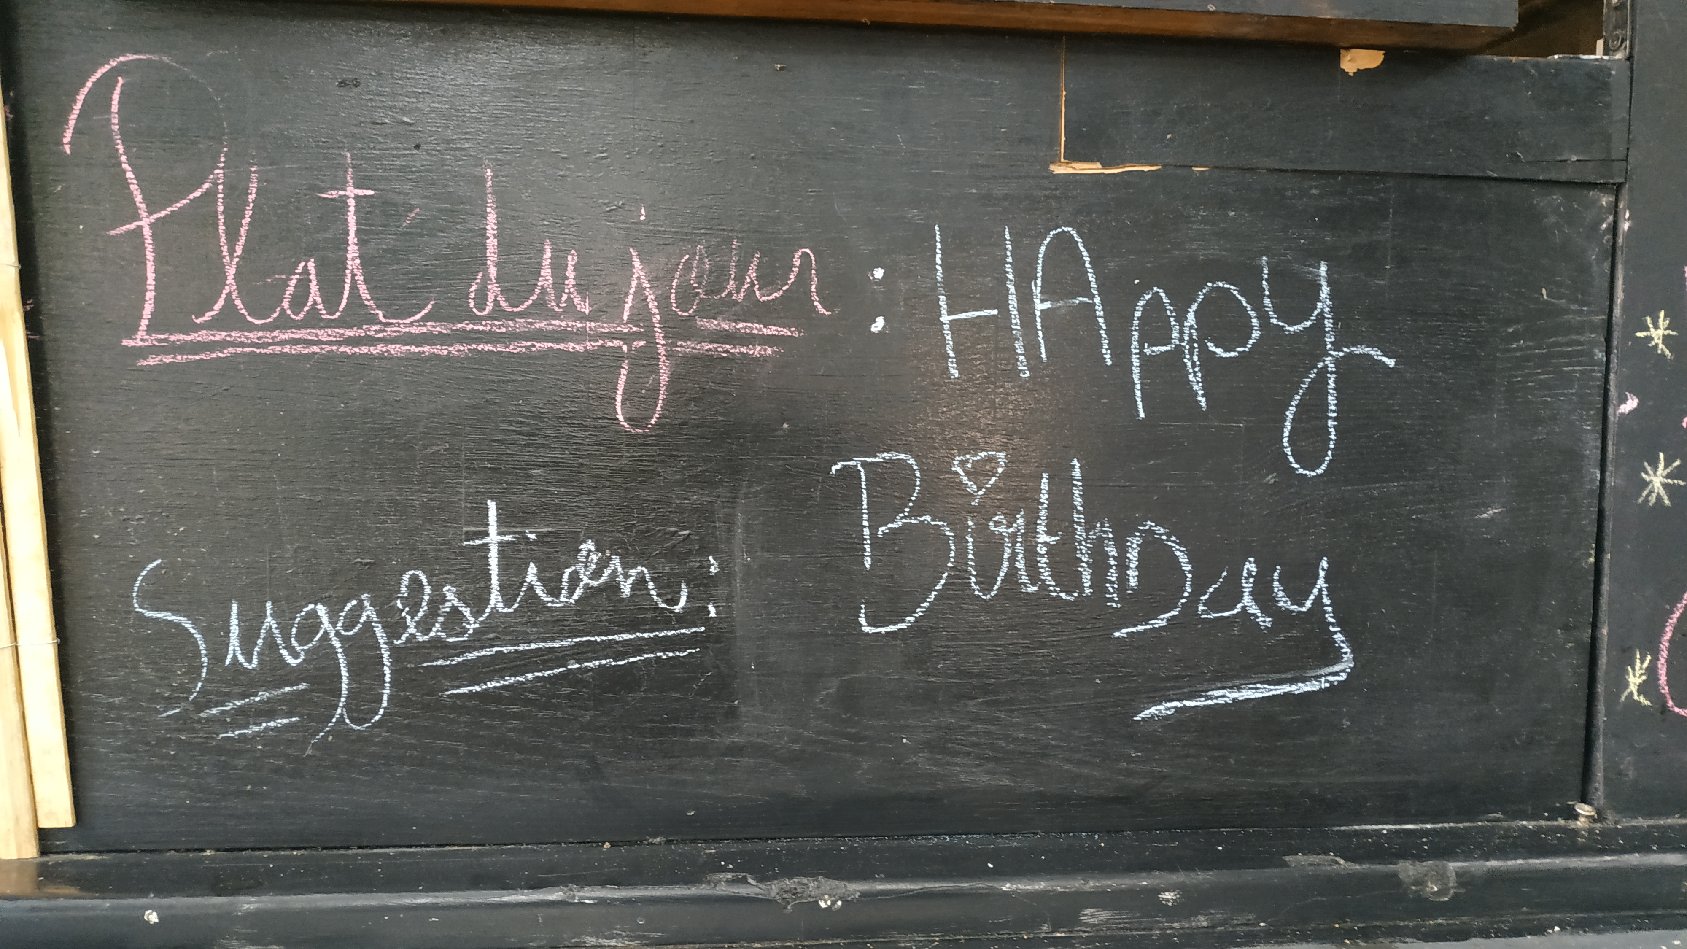 Plat du jour : HAppy
Suggestion : BirthDay